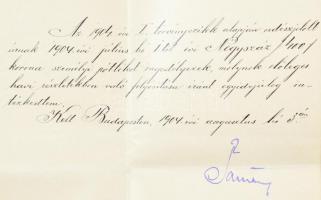 Az 1904 évi I. törvényczikk alapján rendszeresített
1904 évi július hó 1től évi Négyszáz /400/
korona személyi pótlékot engedélyezek, melynek előleges
havi részletekben való folyósítása iránt egyidejüleg in-
tézkedtem.
Kelt Budapesten, 1904 évi augusztus hó 3án